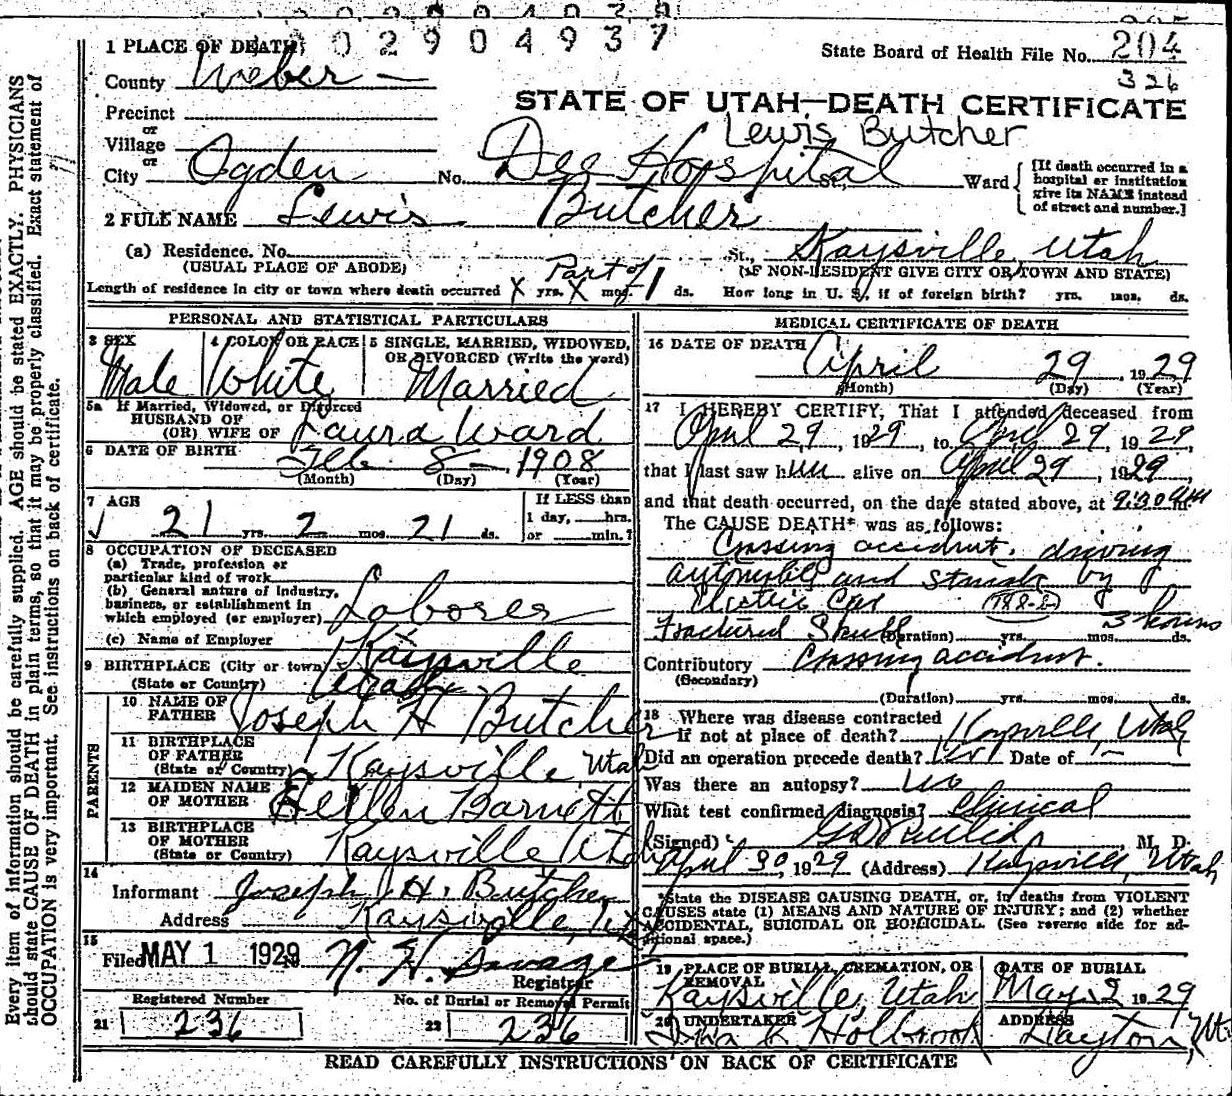 0 0 2 9 0 4 9 3 7
1 PLACE OF DEATH
State Board of Health File No. 204
326
County Weber —
STATE OF UTAH—DEATH CERTIFICATE
Precinct
or
Village
or
Lewis Butcher
City Ogden No. Dee Hospital St., Ward
[If death occurred in a hospital or institution give its NAME instead of street and number.]
2 FULL NAME Lewis Butcher
(a) Residence. No. St., Kaysville, Utah
(USUAL PLACE OF ABODE) (IF NON-RESIDENT GIVE CITY OR TOWN AND STATE)
Length of residence in city or town where death occurred X yrs. X mos. Part of 1 ds. How long in U. S., if of foreign birth? yrs. mos. ds.
PERSONAL AND STATISTICAL PARTICULARS
3 SEX
Male
4 COLOR OR RACE
White
5 SINGLE, MARRIED, WIDOWED, OR DIVORCED (Write the word)
Married
5a If Married, Widowed, or Divorced
HUSBAND OF
(OR) WIFE OF Laura Ward
6 DATE OF BIRTH Feb 8 —, 1908
(Month) (Day) (Year)
7 AGE
21 yrs. 2 mos. 21 ds.
If LESS than
1 day, hrs.
or min.?
8 OCCUPATION OF DECEASED
(a) Trade, profession or
particular kind of work
(b) General nature of industry,
business, or establishment in
which employed (or employer) Laborer
(c) Name of Employer
9 BIRTHPLACE (City or town) Kaysville
(State or Country) Utah
PARENTS
10 NAME OF
FATHER Joseph H Butcher
11 BIRTHPLACE
OF FATHER
(State or Country) Kaysville Utah
12 MAIDEN NAME
OF MOTHER Hellen Barnett
13 BIRTHPLACE
OF MOTHER
(State or Country) Kaysville Utah
14
Informant Joseph H. Butcher
Address Kaysville, Ut
15
Filed MAY 1 1929 N. H. Savage
Registrar
Registered Number
21 236
No. of Burial or Removal Permit
22 236
MEDICAL CERTIFICATE OF DEATH
16 DATE OF DEATH April 29, 1929
(Month) (Day) (Year)
17 I HEREBY CERTIFY, That I attended deceased from
April 29, 1929, to April 29 1929,
that I last saw him alive on April 29, 1929,
and that death occurred, on the date stated above, at 9:30 m.
The CAUSE DEATH* was as follows:
Crossing accident. driving
automobile and struck by
Electric Car 3 hours
Fractured Skull (Duration) yrs. mos. ds.
Contributory Crossing accident.
(Secondary)
(Duration) yrs. mos. ds.
18 Where was disease contracted
If not at place of death? Kaysville, Utah
Did an operation precede death? Date of —
Was there an autopsy? no
What test confirmed diagnosis? Clinical
(Signed) M. D.
April 30, 1929 (Address) Kaysville, Utah
*State the DISEASE CAUSING DEATH, or, in deaths from VIOLENT
CAUSES state (1) MEANS AND NATURE OF INJURY; and (2) whether
ACCIDENTAL, SUICIDAL OR HOMICIDAL. (See reverse side for ad-
ditional space.)
19 PLACE OF BURIAL, CREMATION, OR
REMOVAL
Kaysville, Utah
DATE OF BURIAL
May 2 1929
20 UNDERTAKER
Holbrook
ADDRESS
Layton, Ut
READ CAREFULLY INSTRUCTIONS ON BACK OF CERTIFICATE
Every item of information should be carefully supplied. AGE should be stated EXACTLY. PHYSICIANS
should state CAUSE OF DEATH in plain terms, so that it may be properly classified. Exact statement of
OCCUPATION is very important. See instructions on back of certificate.